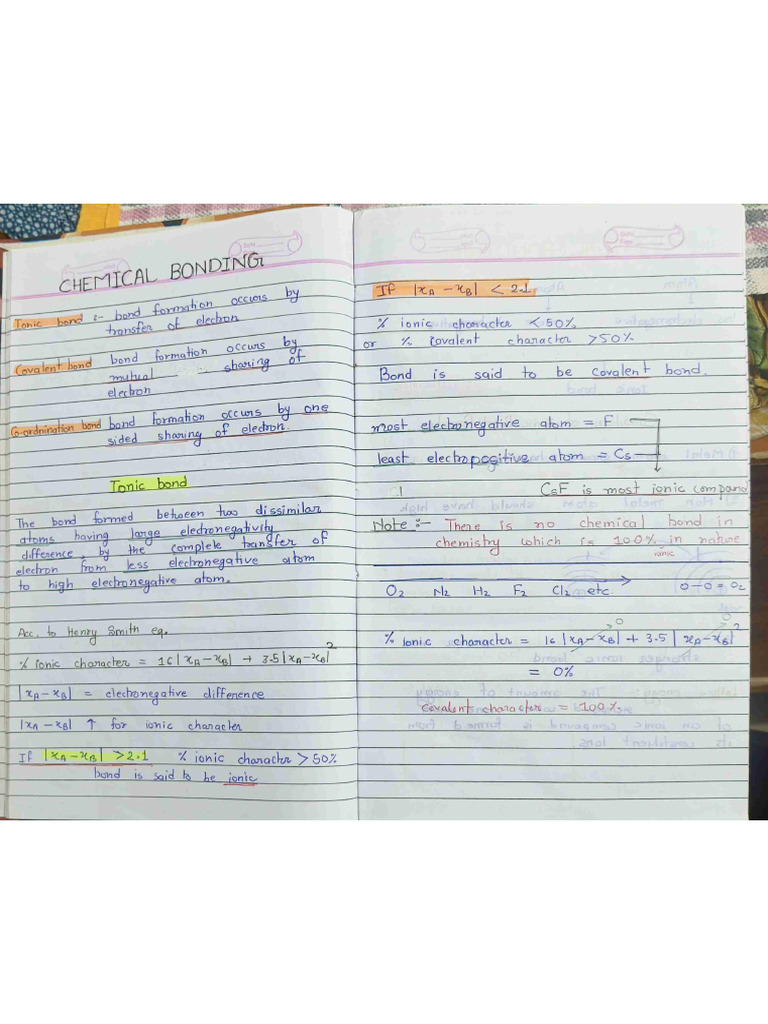 CHEMICAL BONDING
Ionic bond :- bond formation occurs by
transfer of electron
Covalent bond bond formation occurs by
mutual sharing of
electron
Co-ordnination bond bond formation occurs by one
sided sharing of electron.
Ionic bond
The bond formed between two dissimilar
atoms having large electronegativity
difference, by the complete transfer of
electron from less electronegative atom
to high electronegative atom.
Acc. to Henry Smith eq.
% ionic character = 16|xA-xB| + 3.5|xA-xB|²
|xA-xB| = electronegative difference
|xA-xB| ↑ for ionic character
If |xA-xB| >2.1 % ionic character > 50%
bond is said to be ionic
If |xA-xB| < 2.1
% ionic character < 50%
or % covalent character >50%
Bond is said to be covalent bond.
most electronegative atom = F
least electropositive atom = Cs
CsF is most ionic compound
Note :- There is no chemical bond in
chemistry which is 100% in nature
ionic
O2 N2 H2 F2 Cl2 etc. O-O = O2
% Ionic character = 16|xA-xB| + 3.5|xA-xB|²
0
= 0%
Covalent character = 100%